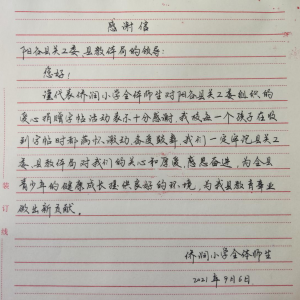 感谢信
阳谷县关工委、县教体局的领导：
您好！
谨代表侨润小学全体师生对阳谷县关工委组织的
爱心捐赠字帖活动表示十分感谢。我校每一个孩子在收
到字帖时都满怀激动、备受鼓舞。我们一定牢记县关工
委、县教体局对我们的关心和厚爱，感恩奋进，为全县
青少年的健康成长提供良好的环境，为我县教育事业
做出新贡献。
侨润小学全体师生
2021年9月6日
装订线